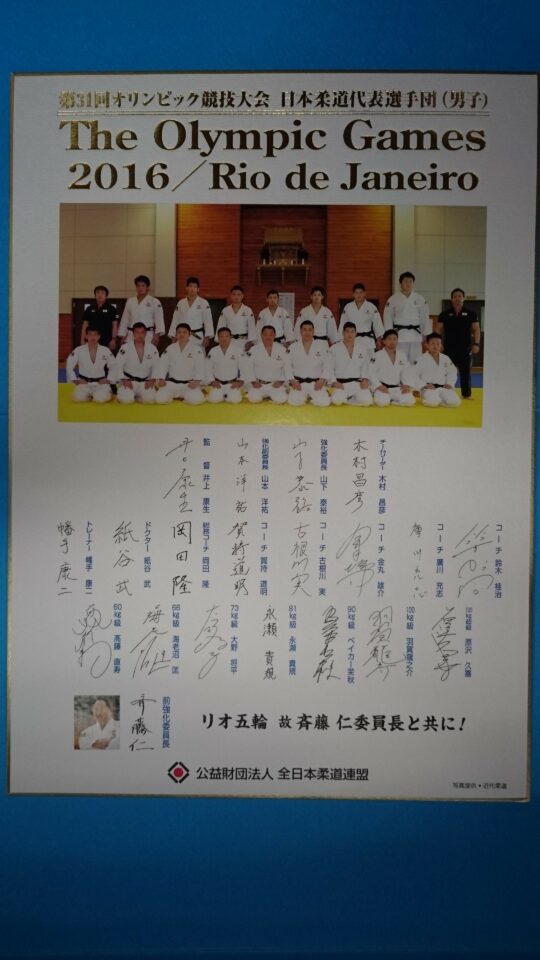 第31回オリンピック競技大会 日本柔道代表選手団(男子)
The Olympic Games
2016/Rio de Janeiro
チームリーダー 木村 昌彦
木村昌彦
強化委員長 山下 泰裕
山下泰裕
強化副委員長 山本 洋祐
山本洋祐
監督 井上 康生
井上康生
コーチ 鈴木 桂治
コーチ 廣川 充志
コーチ 金丸 雄介
コーチ 古根川 実
古根川実
コーチ 賀持 道明
賀持道明
総務コーチ 岡田 隆
岡田隆
ドクター 紙谷 武
紙谷武
トレーナー 幡手 康二
幡手康二
100kg超級 原沢 久喜
100kg級 羽賀龍之介
90kg級 ベイカー茉秋
81kg級 永瀬 貴規
永瀬貴規
73kg級 大野 将平
66kg級 海老沼 匡
60kg級 髙藤 直寿
前強化委員長
斉藤仁
リオ五輪 故 斉藤 仁委員長と共に!
公益財団法人 全日本柔道連盟
写真提供・近代柔道